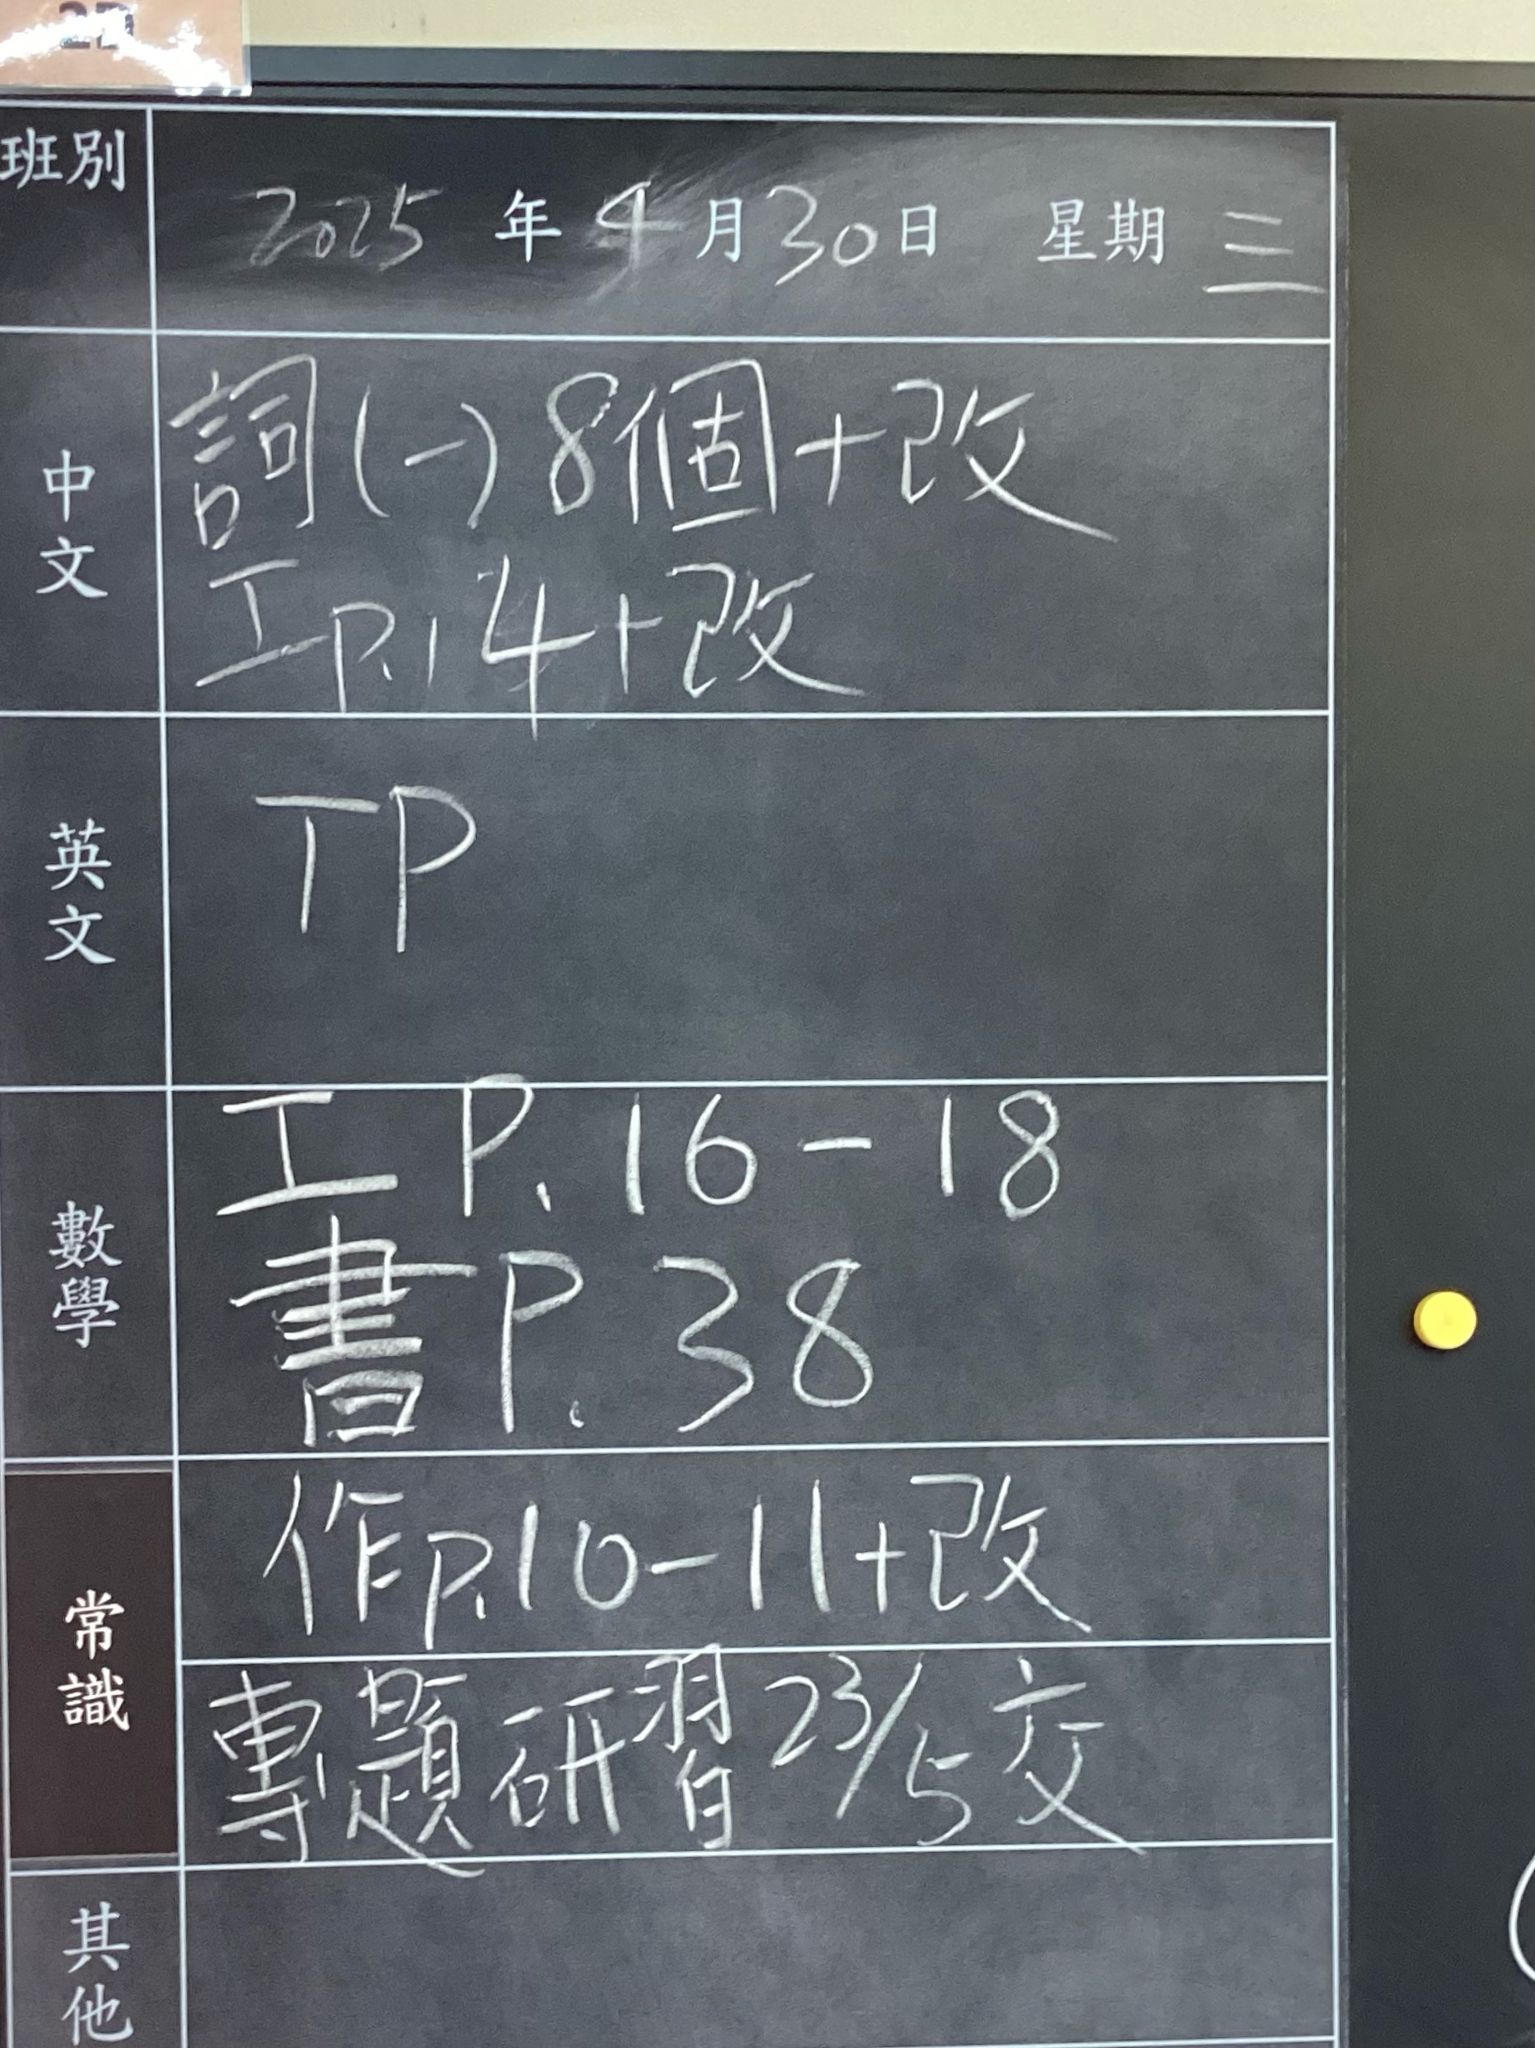 班別
2025年4月30日 星期三
中文
詞(一)8個+改
工P.14+改
英文
TP
數學
工 P.16-18
書 P.38
常識
作P.10-11+改
專題研習 23/5交
其他